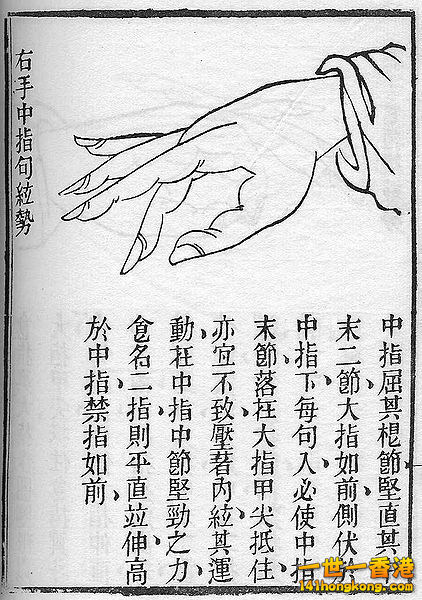 右手中指句絃勢
中指屈其根節堅直其
末二節大指如前側伏於
中指下每句入必使中指
末節落在大指甲尖抵住
亦宜不致壓著內絃其運
動在中指中節堅勁之力
食名二指則平直竝伸高
於中指禁指如前
一世一香港
141hongkong.com